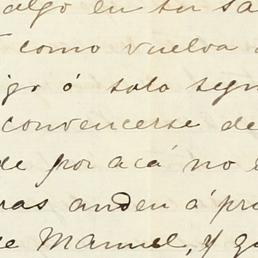 algo en su sa
como vuelva
igo ó solo segu
convencerse de
de por acá no e
ras anden á pr
e Manuel, y qu